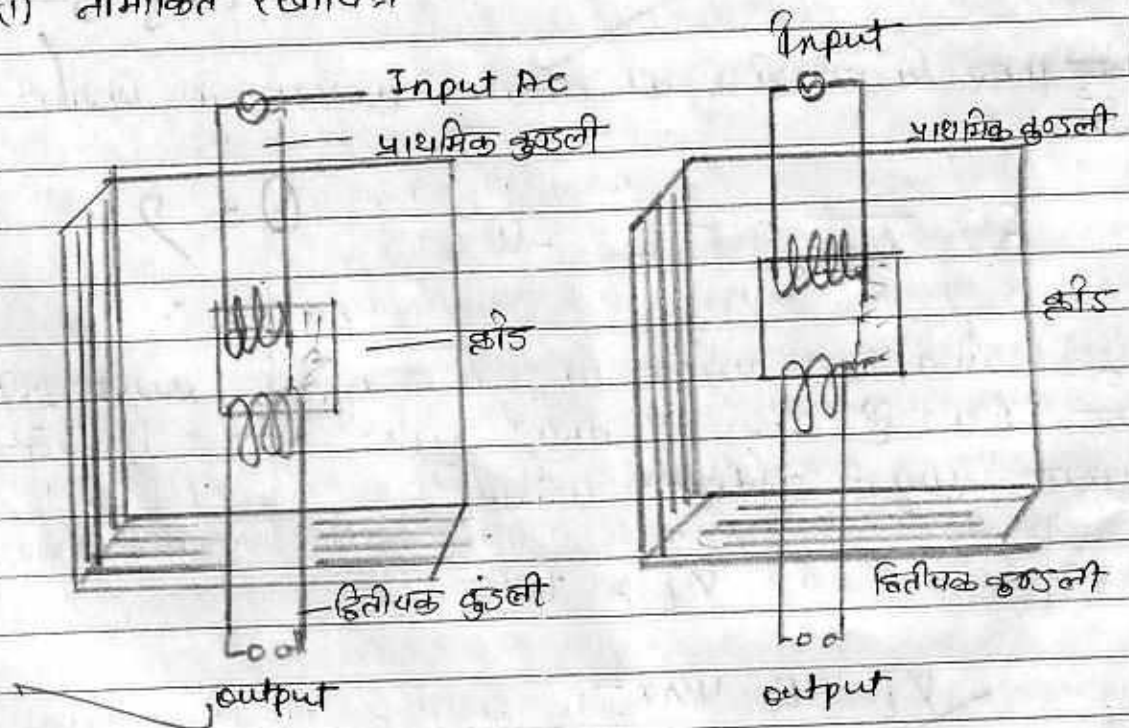 (i) नामांकित रेखाचित्र
Input AC
प्राथमिक कुण्डली
क्रोड
द्वितीयक कुंडली
output
Input
प्राथमिक कुण्डली
क्रोड
द्वितीयक कुण्डली
output